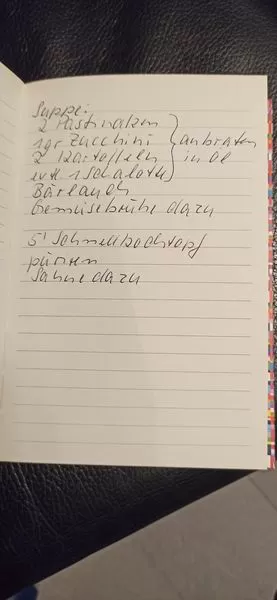 Suppe:
2 Pastinaken
1 gr Zucchini } anbraten
2 Kartoffeln } in Öl
evtl 1 Schalotte
Bärlauch
Gemüsebrühe dazu
5' Schnellkochtopf
pürieren
Sahne dazu